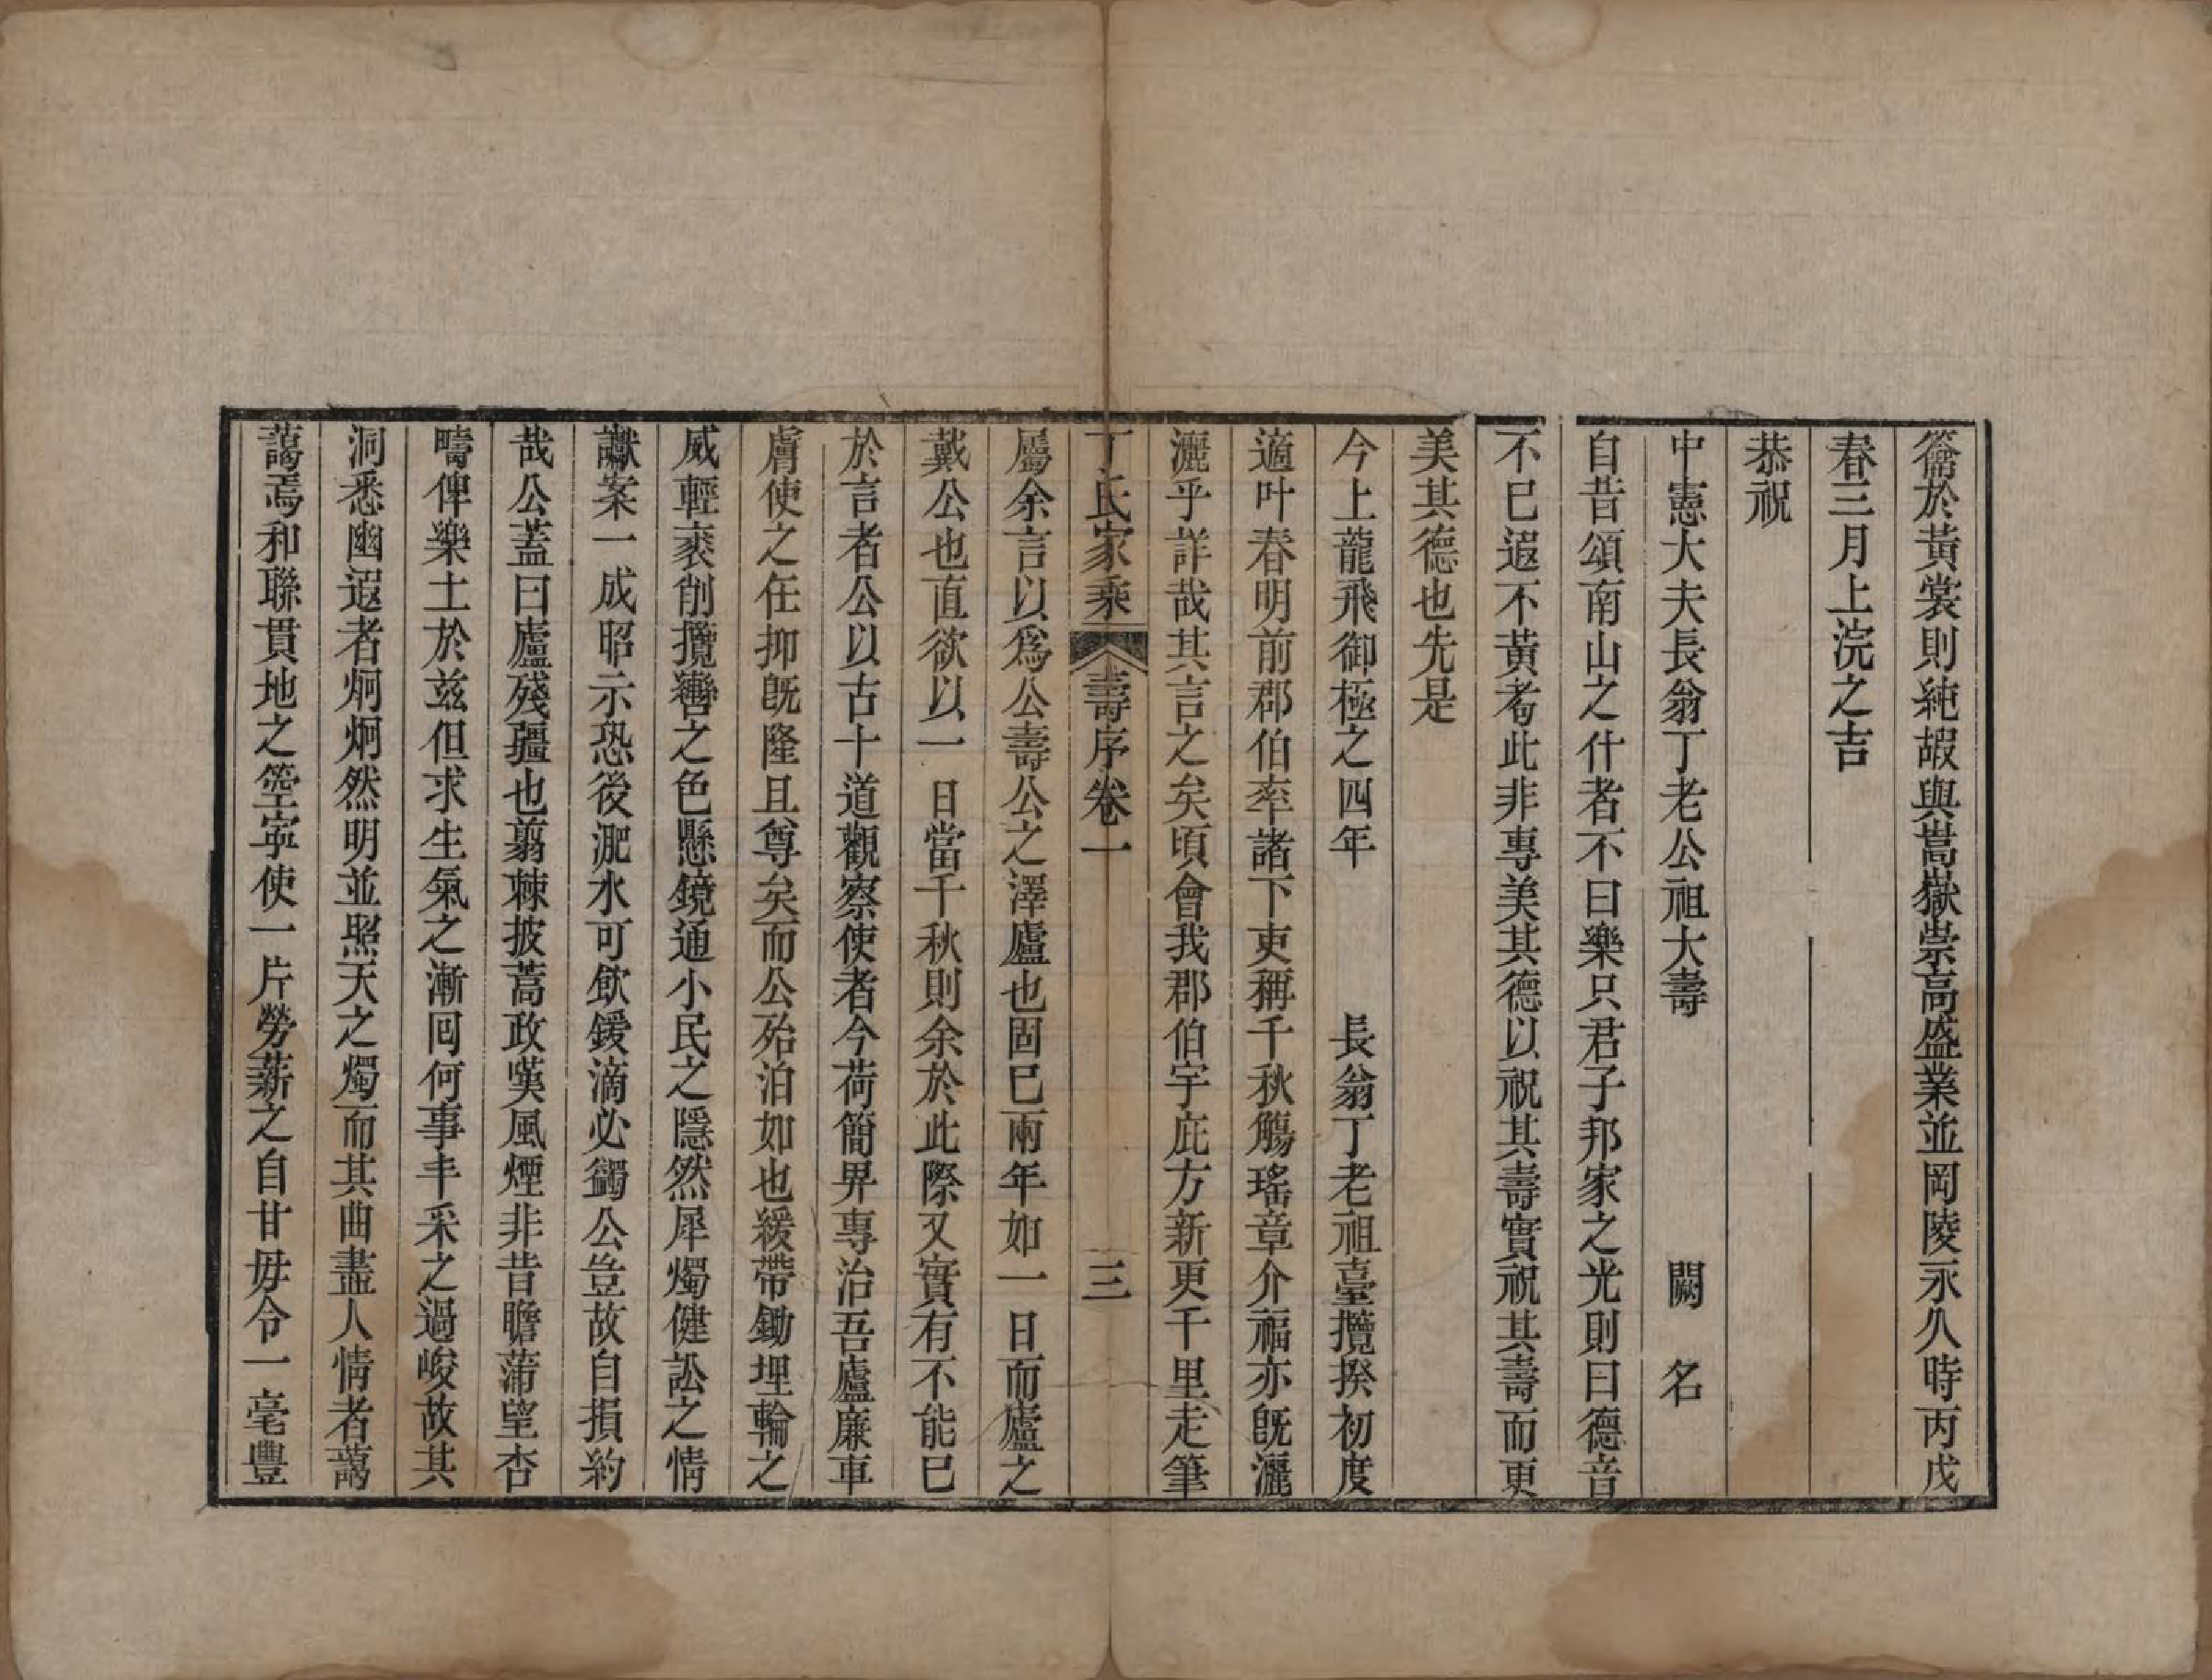 籥於黃裳則純嘏與嵩嶽崇高盛業並岡陵永久時丙戌
春三月上浣之吉
恭祝
中憲大夫長翁丁老公祖大壽 闕名
自昔頌南山之什者不曰樂只君子邦家之光則曰德音
不已遐不黃耇此非專美其德以祝其壽實祝其壽而更
美其德也先是
今上龍飛御極之四年 長翁丁老祖臺攬揆初度
適叶春明前郡伯率諸下吏稱千秋觴瑤章介福亦旣灑
灑乎詳哉其言之矣頃會我郡伯宇庇方新更千里走筆
丁氏家乘 壽序卷一 三
屬余言以爲公壽公之澤廬也固已兩年如一日而廬之
戴公也直欲以一日當千秋則余於此際又實有不能已
於言者公以古十道觀察使者今荷簡畀專治吾廬廉車
膚使之任抑旣隆且尊矣而公殆泊如也緩帶鋤埋輪之
威輕裘削攬轡之色懸鏡通小民之隱然犀燭健訟之情
讞案一成昭示恐後淝水可飲鍰滴必蠲公豈故自損約
哉公蓋曰廬殘疆也翦棘披蒿政嘆風煙非昔瞻蒲望杏
疇俾樂土於茲但求生氣之漸囘何事丰采之過峻故其
洞悉幽遐者炯炯然明並照天之燭而其曲盡人情者藹
藹焉和聯貫地之箜寧使一片勞薪之自甘毋令一毫豐